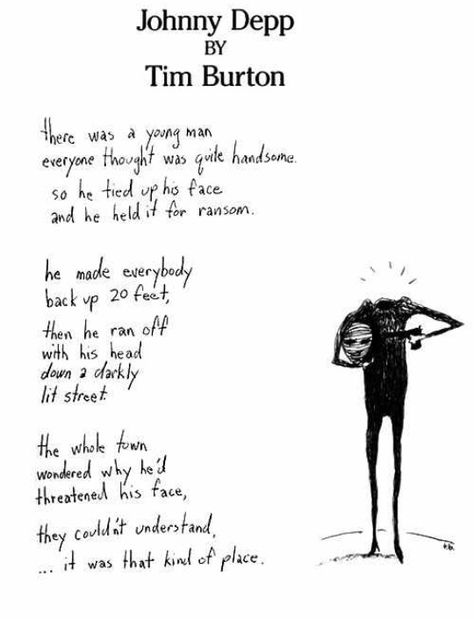 Johnny Depp
BY
Tim Burton
there was a young man
everyone thought was quite handsome.
so he tied up his face
and he held it for ransom.
he made everybody
back up 20 feet,
then he ran off
with his head
down a darkly
lit street.
the whole town
wondered why he'd
threatened his face,
they couldn't understand,
... it was that kind of place.